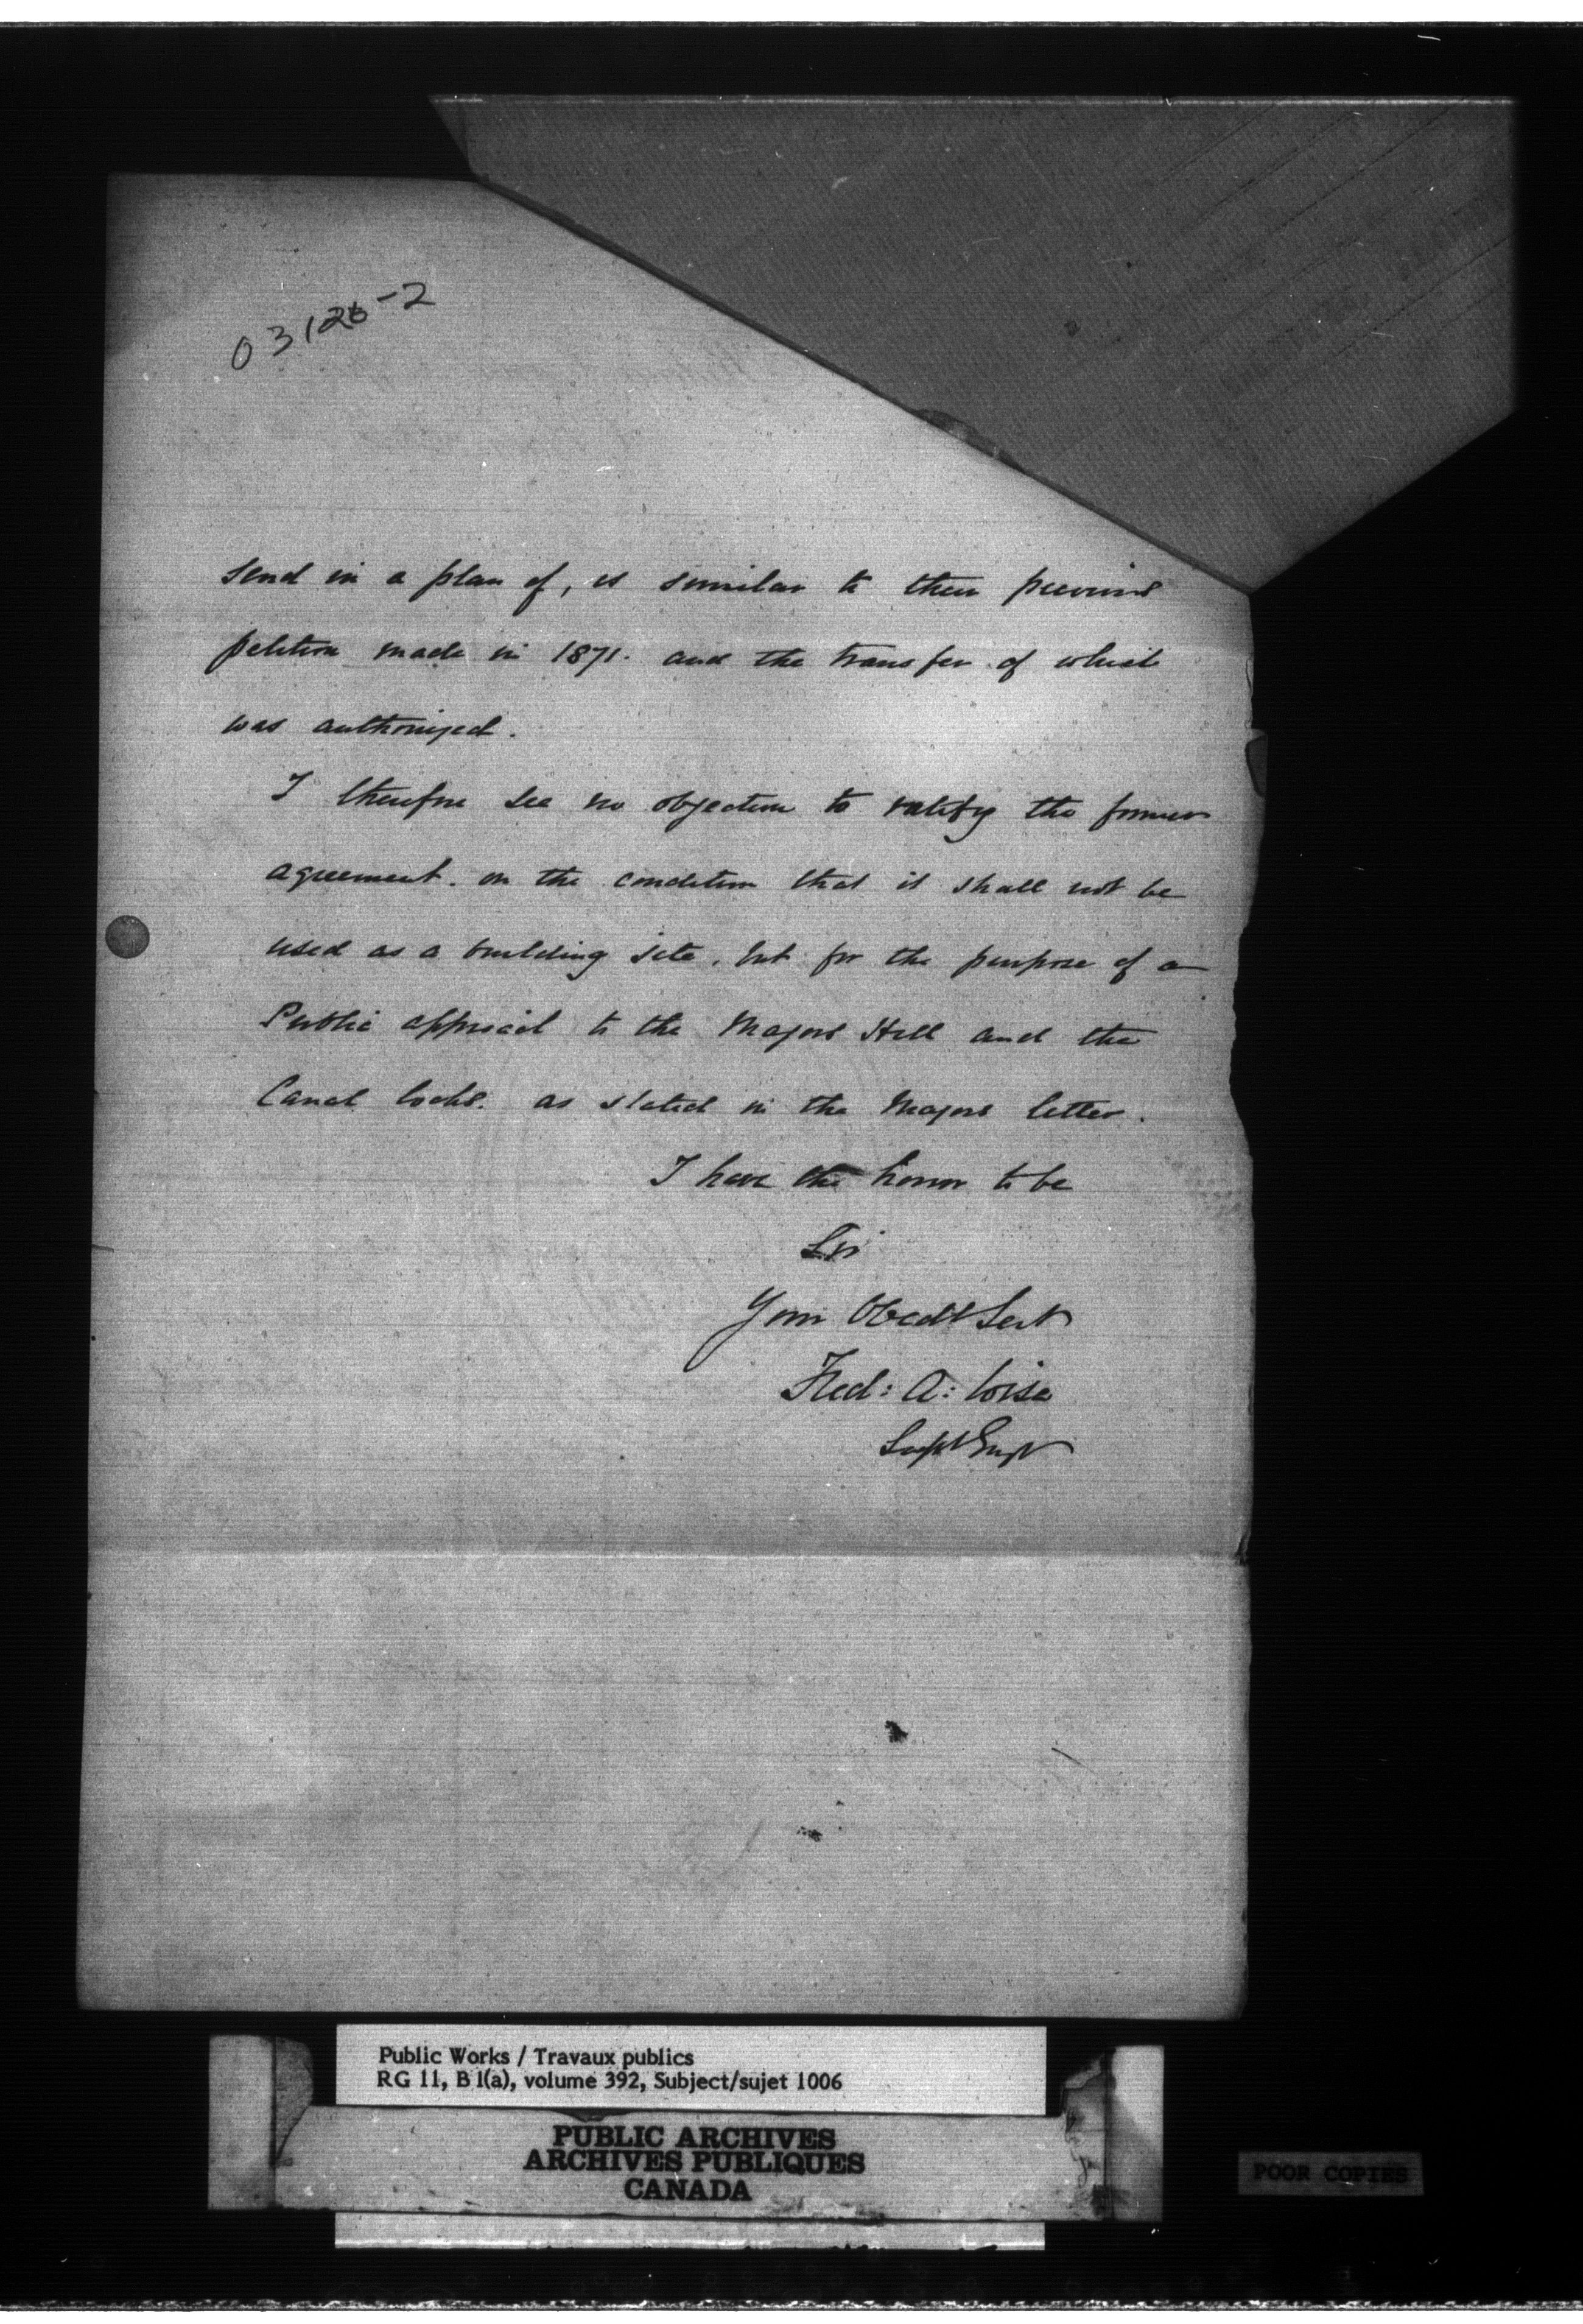 03126-2
send in a plan of, is similar to their previous
petition made in 1871. and the transfer of which
was authorized.
I therefore see no objection to ratify the former
agreement. on the condition that it shall not be
used as a building site, but for the purpose of a
Public approach to the Majors Hill and the
Canal locks. as stated in the Mayors letter.
I have the honor to be
Sir
Your Obedt Sert
Fred: A: Wise
Supt Engr
Public Works / Travaux publics
RG 11, B 1(a), volume 392, Subject/sujet 1006
PUBLIC ARCHIVES
ARCHIVES PUBLIQUES
CANADA
POOR COPIES